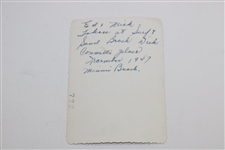 Ed & Mick
Taken at Surf &
Sand Beach Dick
Connells place
December 1947
Miami Beach.